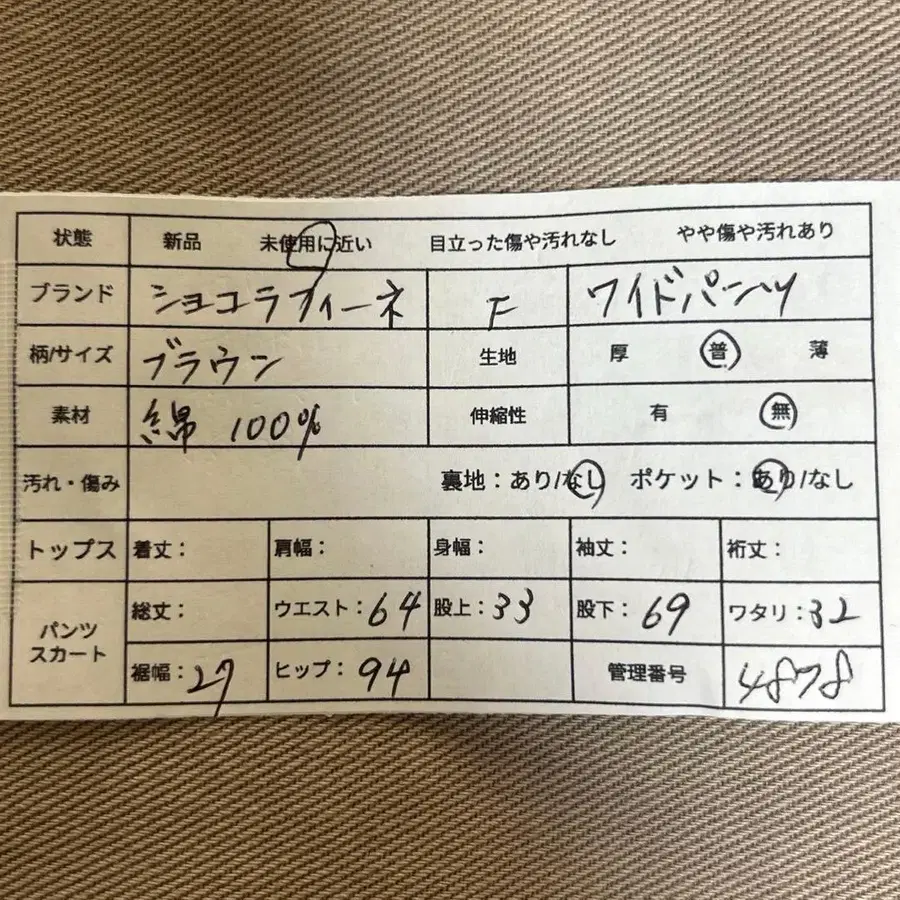 状態 新品 未使用に近い 目立った傷や汚れなし やや傷や汚れあり
ブランド ショコラフィーネ F ワイドパンツ
柄/サイズ ブラウン 生地 厚 普 薄
素材 綿 100% 伸縮性 有 無
汚れ・傷み 裏地：あり/なし ポケット：あり/なし
トップス 着丈： 肩幅： 身幅： 袖丈： 裄丈：
パンツ スカート 総丈： ウエスト：64 股上：33 股下：69 ワタリ：32
裾幅：27 ヒップ：94 管理番号 4878